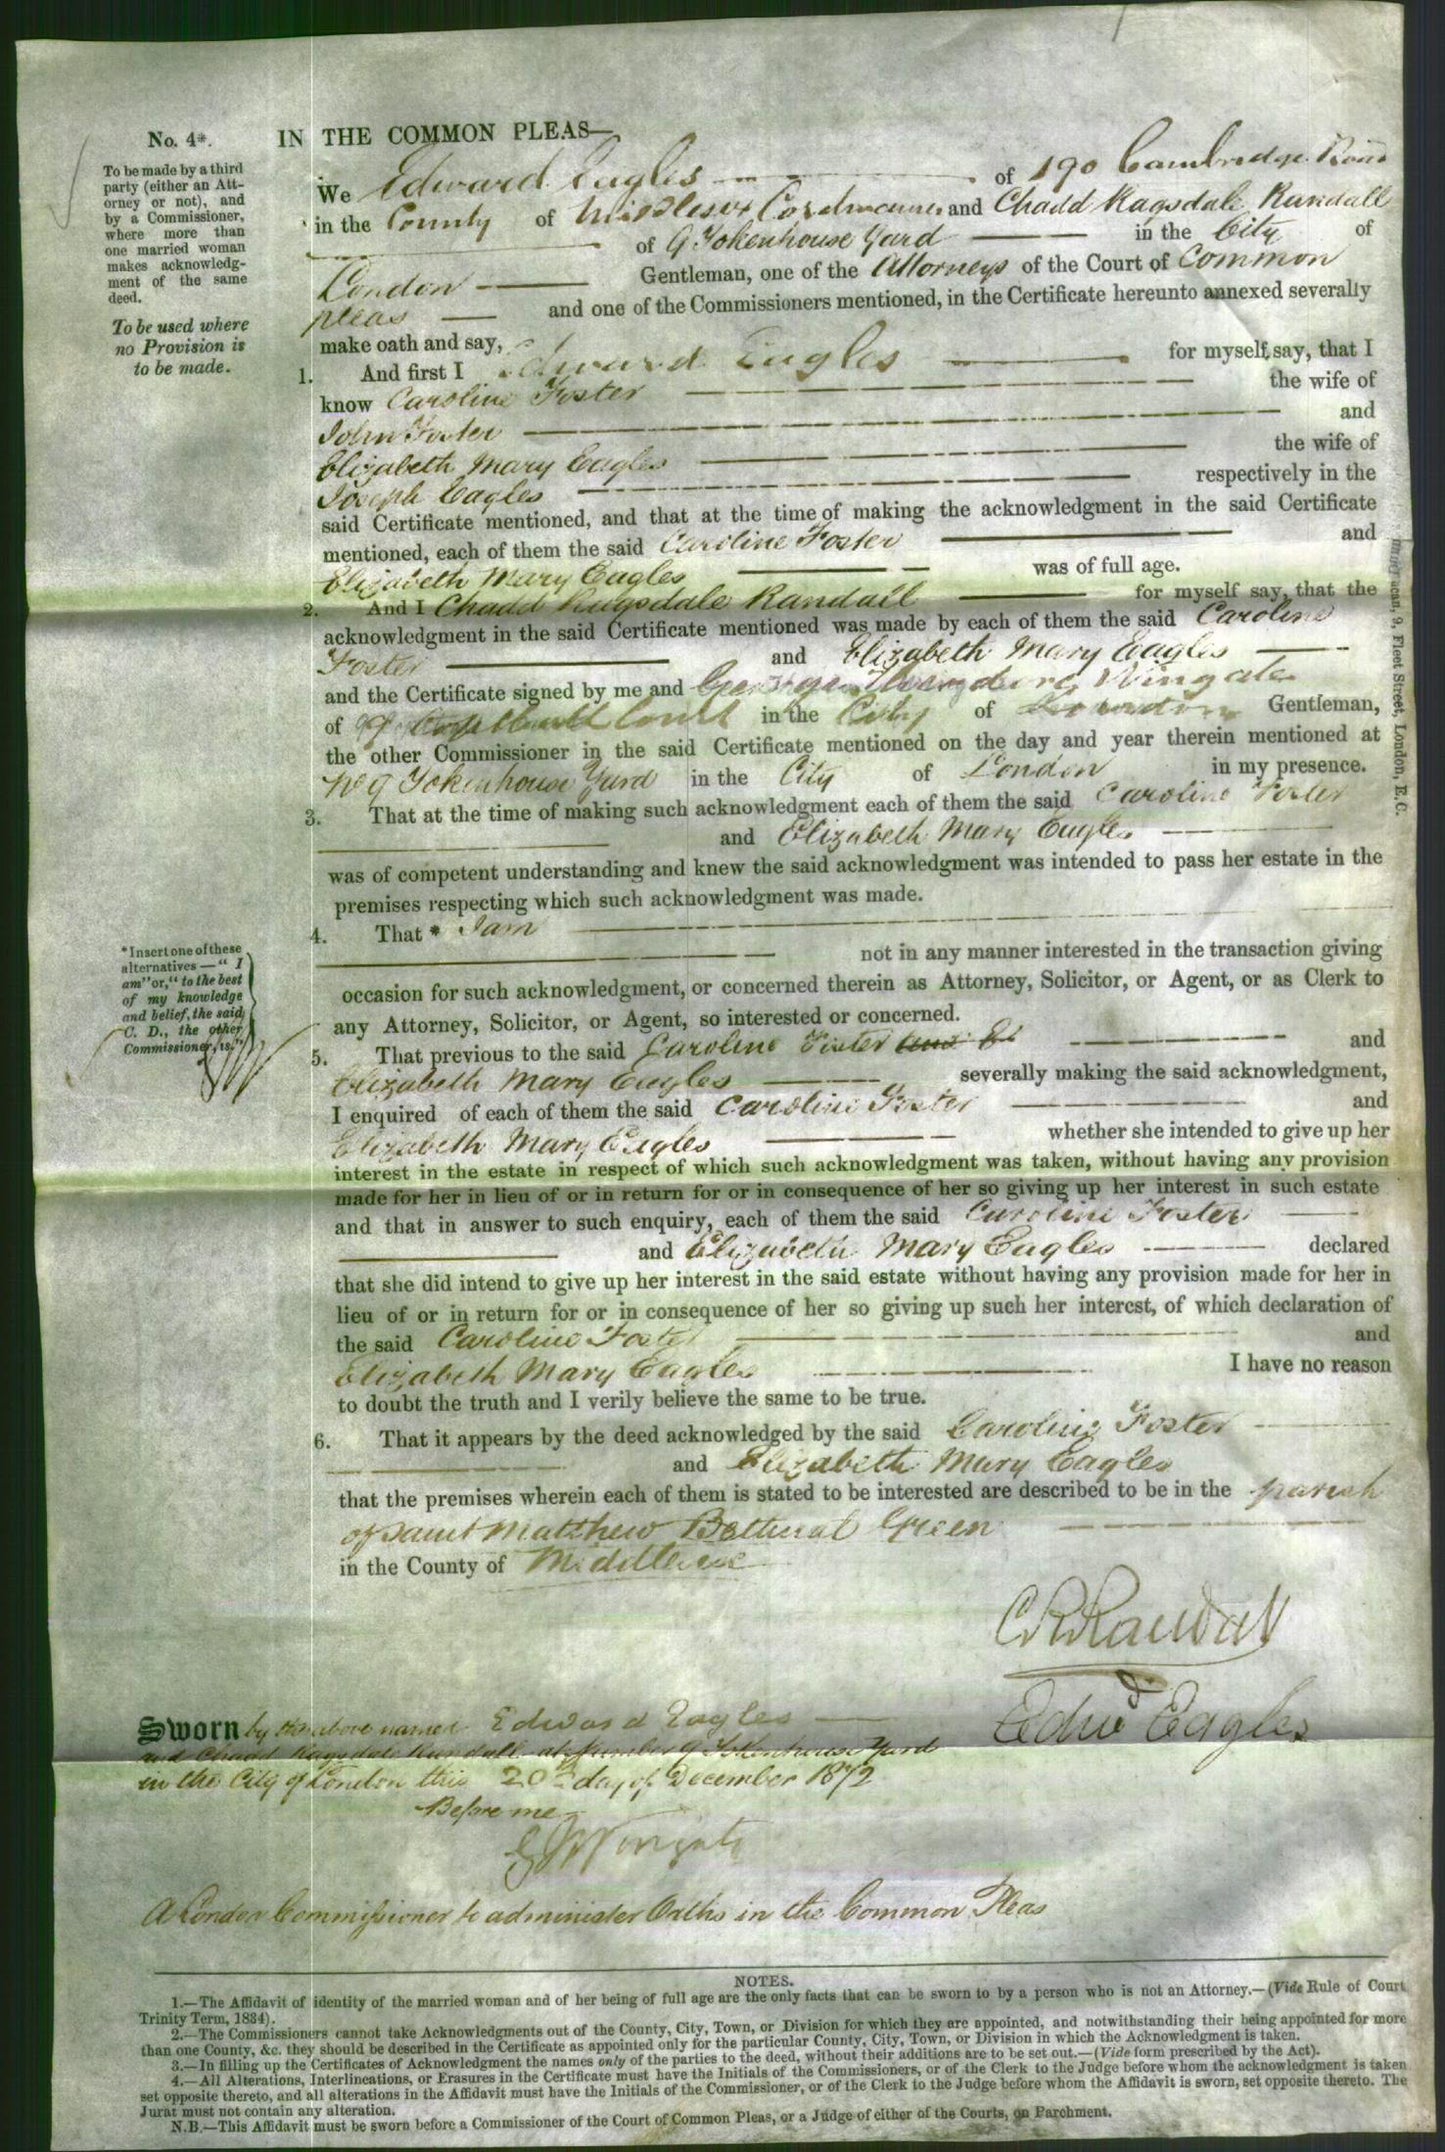 No. 4*.
To be made by a third
party (either an Att-
orney or not), and
by a Commissioner,
where more than
one married woman
makes acknowledg-
ment of the same
deed.
To be used where
no Provision is
to be made.
IN THE COMMON PLEAS—
We Edward Eagles of 190 Cambridge Road
in the County of Middlesex Cordwainer and Chadd Ragsdale Randall
of 9 Tokenhouse Yard in the City of
London Gentleman, one of the Attorneys of the Court of Common
pleas and one of the Commissioners mentioned, in the Certificate hereunto annexed severally
make oath and say,
1. And first I Edward Eagles for myself, say, that I
know Caroline Foster the wife of
John Foster and
Elizabeth Mary Eagles the wife of
Joseph Eagles respectively in the
said Certificate mentioned, and that at the time of making the acknowledgment in the said Certificate
mentioned, each of them the said Caroline Foster and
Elizabeth Mary Eagles was of full age.
2. And I Chadd Ragsdale Randall for myself say, that the
acknowledgment in the said Certificate mentioned was made by each of them the said Caroline
Foster and Elizabeth Mary Eagles
and the Certificate signed by me and George Wingate
of 9 Court in the City of London Gentleman,
the other Commissioner in the said Certificate mentioned on the day and year therein mentioned at
No 9 Tokenhouse Yard in the City of London in my presence.
3. That at the time of making such acknowledgment each of them the said Caroline Foster
and Elizabeth Mary Eagles
was of competent understanding and knew the said acknowledgment was intended to pass her estate in the
premises respecting which such acknowledgment was made.
4. That * I am
not in any manner interested in the transaction giving
occasion for such acknowledgment, or concerned therein as Attorney, Solicitor, or Agent, or as Clerk to
any Attorney, Solicitor, or Agent, so interested or concerned.
*Insert one of these
alternatives—"I
am" or, "to the best
of my knowledge
and belief, the said
C. D., the other
Commissioner, is."
5. That previous to the said Caroline Foster and El and
Elizabeth Mary Eagles severally making the said acknowledgment,
I enquired of each of them the said Caroline Foster and
Elizabeth Mary Eagles whether she intended to give up her
interest in the estate in respect of which such acknowledgment was taken, without having any provision
made for her in lieu of or in return for or in consequence of her so giving up her interest in such estate
and that in answer to such enquiry, each of them the said Caroline Foster
and Elizabeth Mary Eagles declared
that she did intend to give up her interest in the said estate without having any provision made for her in
lieu of or in return for or in consequence of her so giving up such her interest, of which declaration of
the said Caroline Foster and
Elizabeth Mary Eagles I have no reason
to doubt the truth and I verily believe the same to be true.
6. That it appears by the deed acknowledged by the said Caroline Foster
and Elizabeth Mary Eagles
that the premises wherein each of them is stated to be interested are described to be in the parish
of Saint Matthew Bethnal Green
in the County of Middlesex
C R Randall
Edwd Eagles
Sworn by the above named Edward Eagles
and Chadd Ragsdale Randall at Number 9 Tokenhouse Yard
in the City of London this 20th day of December 1872
Before me
G Wingate
A London Commissioner to administer Oaths in the Common Pleas
9, Fleet Street, London, E.C.
NOTES.
1.—The Affidavit of identity of the married woman and of her being of full age are the only facts that can be sworn to by a person who is not an Attorney.—(Vide Rule of Court
Trinity Term, 1834).
2.—The Commissioners cannot take Acknowledgments out of the County, City, Town, or Division for which they are appointed, and notwithstanding their being appointed for more
than one County, &c. they should be described in the Certificate as appointed only for the particular County, City, Town, or Division in which the Acknowledgment is taken.
3.—In filling up the Certificates of Acknowledgment the names only of the parties to the deed, without their additions are to be set out.—(Vide form prescribed by the Act).
4.—All Alterations, Interlineations, or Erasures in the Certificate must have the Initials of the Commissioners, or of the Clerk to the Judge before whom the acknowledgment is taken
set opposite thereto, and all alterations in the Affidavit must have the Initials of the Commissioner, or of the Clerk to the Judge before whom the Affidavit is sworn, set opposite thereto. The
Jurat must not contain any alteration.
N.B.—This Affidavit must be sworn before a Commissioner of the Court of Common Pleas, or a Judge of either of the Courts, on Parchment.